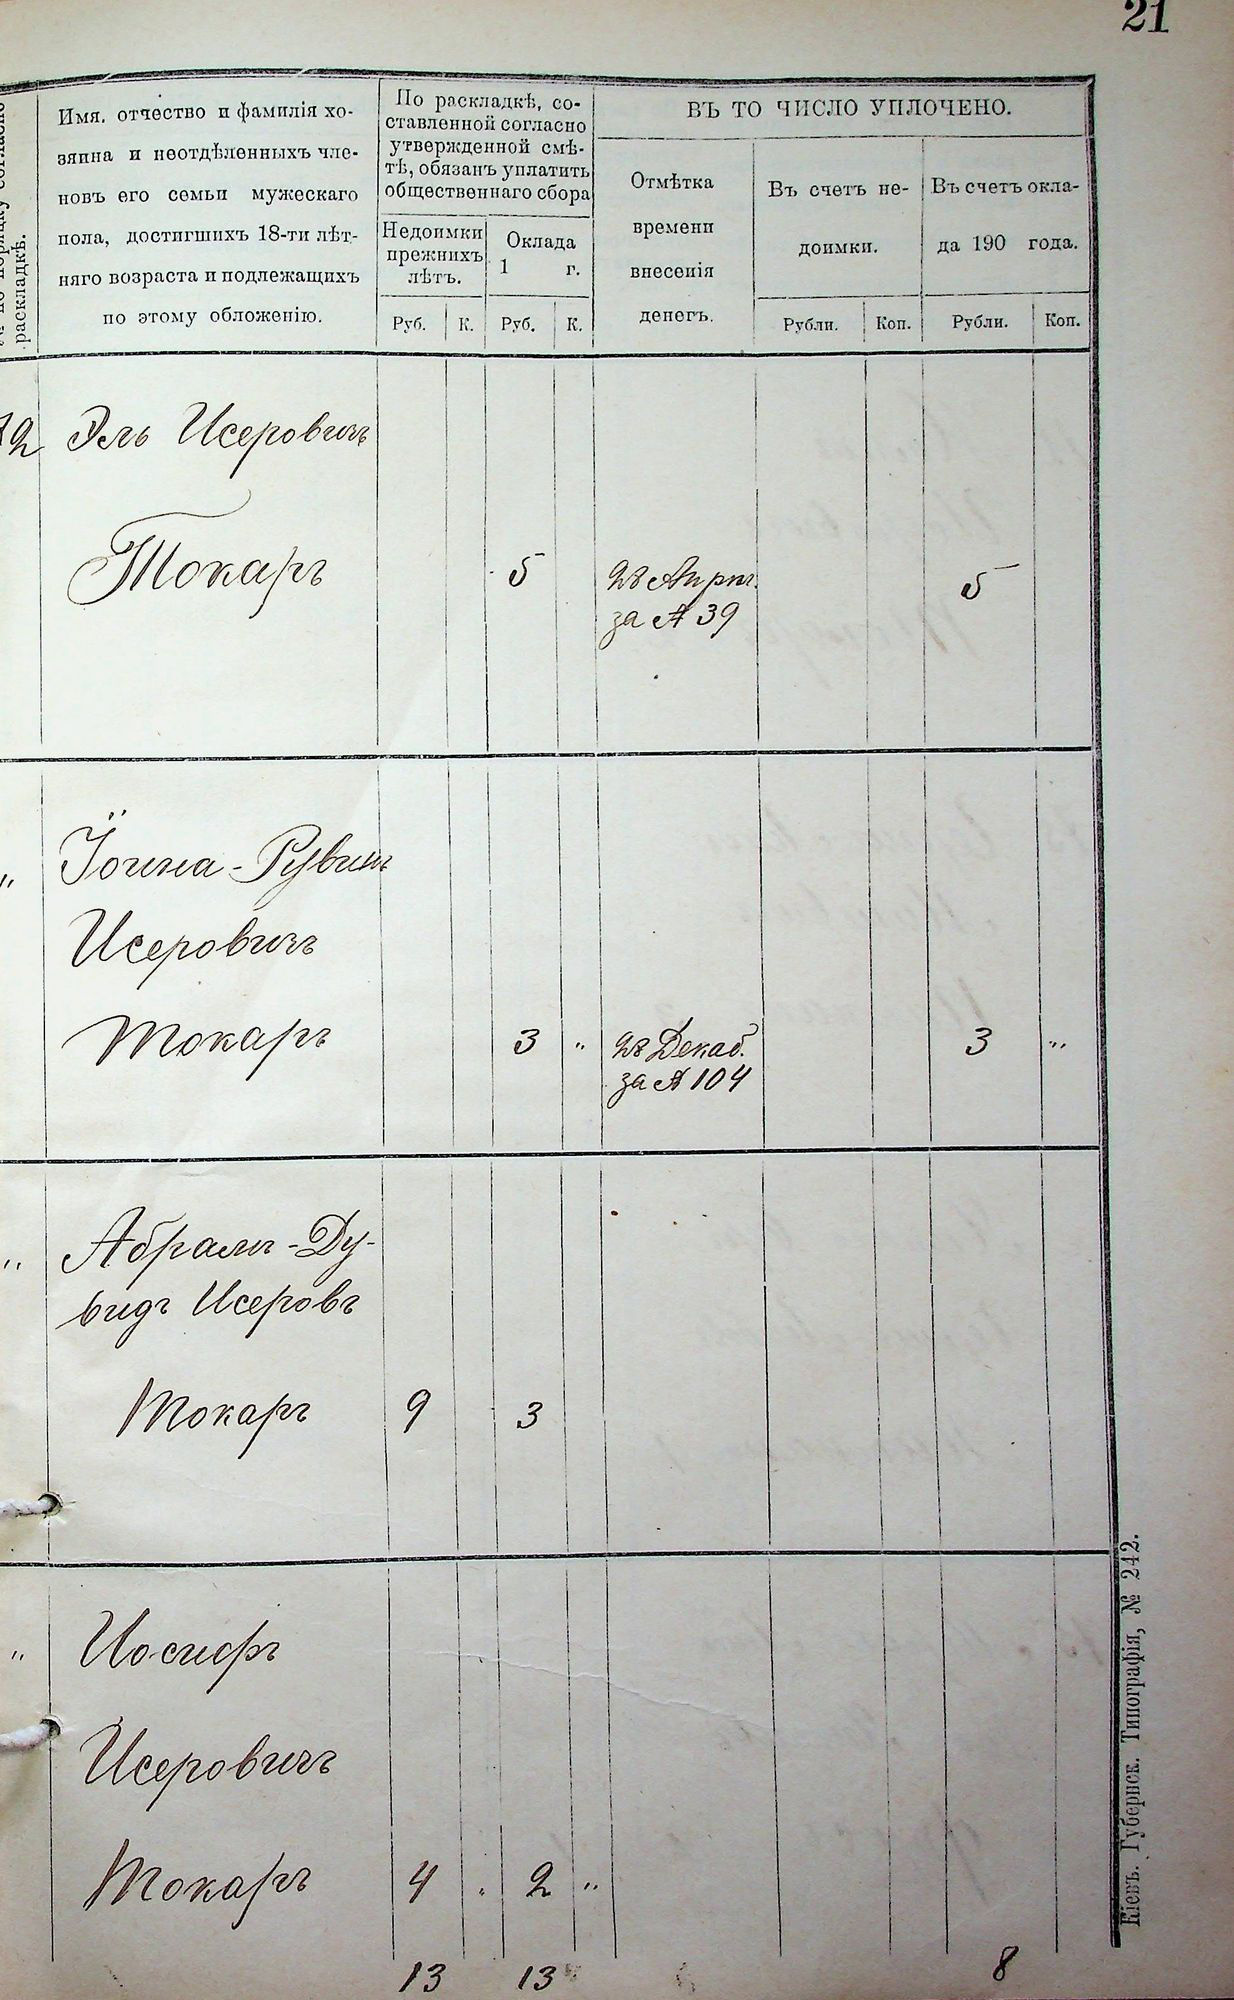 21
раскладкѣ.
Имя, отчество и фамилія хо-
зяина и неотдѣленныхъ чле-
новъ его семьи мужескаго
пола, достигшихъ 18-ти лѣт-
няго возраста и подлежащихъ
по этому обложенію.
По раскладкѣ, со-
ставленной согласно
утвержденной смѣ-
тѣ, обязанъ уплатить
общественнаго сбора
Недоимки
прежнихъ
лѣтъ.
Оклада
1 г.
Руб. К. Руб. К.
ВЪ ТО ЧИСЛО УПЛОЧЕНО.
Отмѣтка
времени
внесенія
денегъ.
Въ счетъ не-
доимки.
Въ счетъ окла-
да 190 года.
Рубли. Коп. Рубли. Коп.
Эль Исеровичъ
Токаръ 5 28 Апрѣл. 5
за № 39
„ Іоина-Рувинъ
Исеровичъ
Токаръ 3 „ 28 Декаб. 3 „
за № 104
„ Абрамъ-Ду-
видъ Исеровъ
Токаръ 9 3
„ Іосифъ
Исеровичъ
Токаръ 4 „ 2 „
13 13 8
Кіевъ. Губернск. Типографія, № 242.